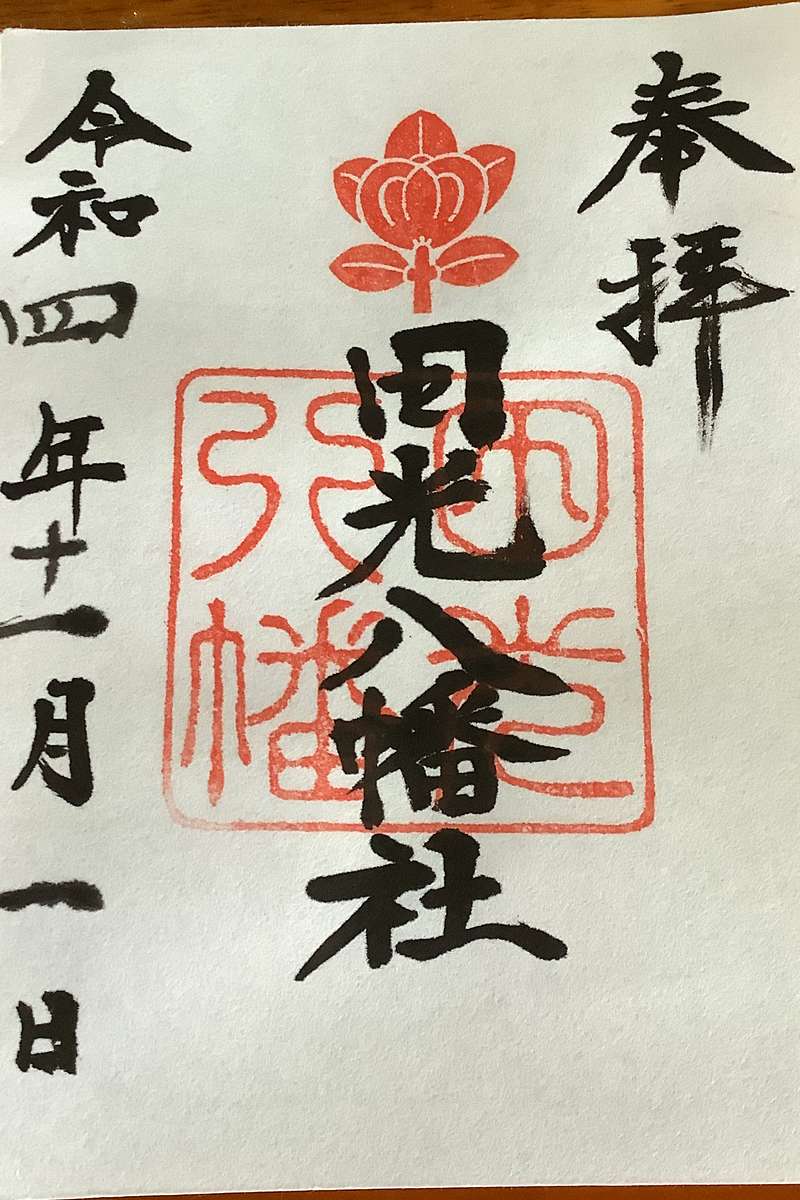 奉拝
田光八幡社
田光八幡
令和四年十一月一日